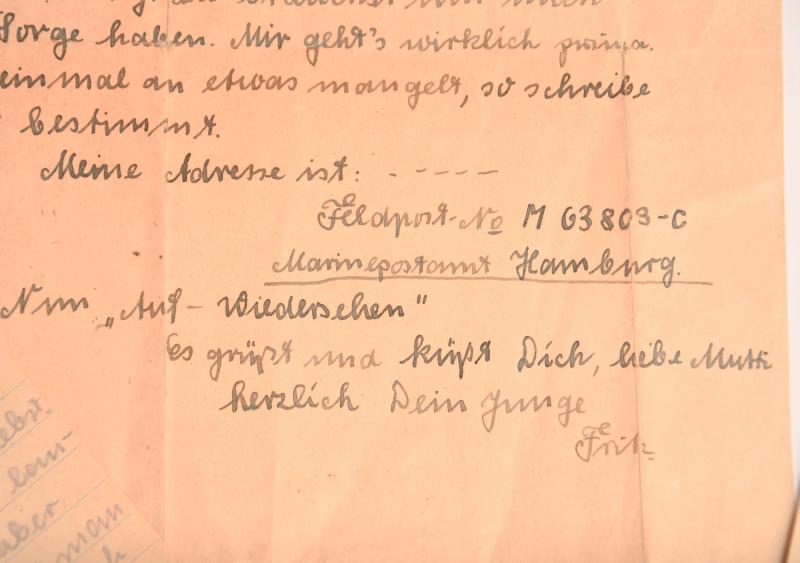 Sorge haben. Mir geht's wirklich prima.
einmal an etwas mangelt, so schreibe
bestimmt.
Meine Adresse ist: - - - - -
Feldpost-No M 63803-C
Marinepostamt Hamburg.
Nun „Auf-Wiedersehen"
Es grüßt und küßt Dich, liebe Mutti
herzlich Dein Junge
Fritz
aber
man